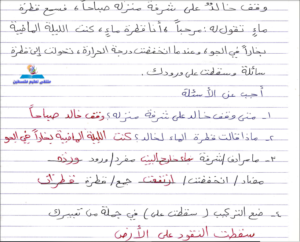 وقف خالد على شرفة منزله صباحاً، فسمع قطرة
ماءٍ تقول له: مرحباً، أنا قطرة ماءٍ، كنت الليلة الماضية
بخاراً في الجو، وعندما انخفضت درجة الحرارة، تحولت إلى قطرة
سائلة وسقطت على ورودك.
أجب عن الأسئلة
١- متى وقف خالد على شرفة منزله؟ وقف خالد صباحاً
٢- ماذا قالت قطرة الماء لخالد؟ كنت الليلة الماضية بخاراً في الجو
٣- ما مرادف/ شرفة مفرد/ ورود وردة
مضاد/ انخفضت/ ارتفعت جمع/ قطرة قطرات
٤- ضع التركيب (سقطت على) في جملة من تعبيرك
سقطت النقود على الأرض